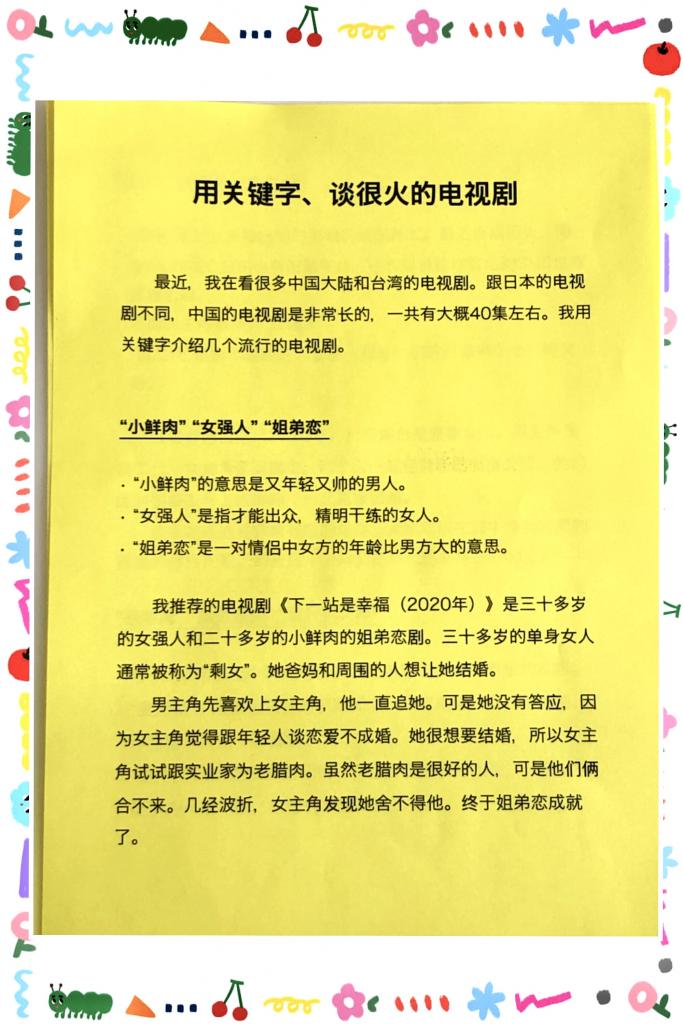 用关键字、谈很火的电视剧
最近，我在看很多中国大陆和台湾的电视剧。跟日本的电视
剧不同，中国的电视剧是非常长的，一共有大概40集左右。我用
关键字介绍几个流行的电视剧。
“小鲜肉” “女强人” “姐弟恋”
· “小鲜肉”的意思是又年轻又帅的男人。
· “女强人”是指才能出众，精明干练的女人。
· “姐弟恋”是一对情侣中女方的年龄比男方大的意思。
我推荐的电视剧《下一站是幸福（2020年）》是三十多岁
的女强人和二十多岁的小鲜肉的姐弟恋剧。三十多岁的单身女人
通常被称为“剩女”。她爸妈和周围的人想让她结婚。
男主角先喜欢上女主角，他一直追她。可是她没有答应，因
为女主角觉得跟年轻人谈恋爱不成婚。她很想要结婚，所以女主
角试试跟实业家为老腊肉。虽然老腊肉是很好的人，可是他们俩
合不来。几经波折，女主角发现她舍不得他。终于姐弟恋成就
了。